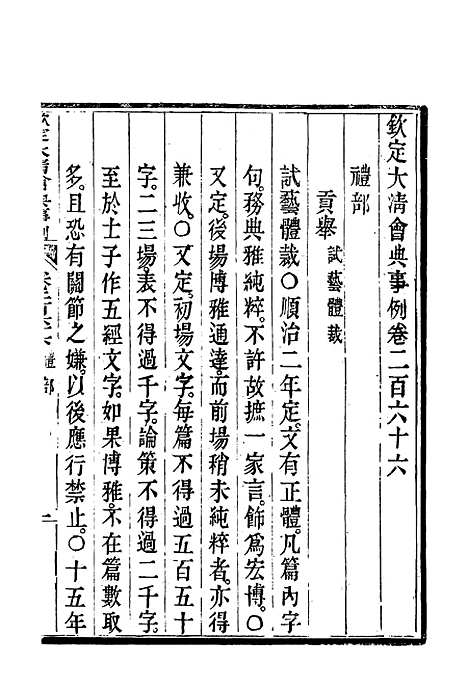 欽定大清會典事例卷二百六十六
禮部
貢舉 試藝體裁
試藝體裁○順治二年定。文有正體。凡篇內字
句。務典雅純粹。不許故摭一家言。飾爲宏博。○
又定。後場博雅通達。而前場稍未純粹者。亦得
兼收。○又定。初場文字。每篇不得過五百五十
字。二三場表不得過千字。論策不得過二千字。
至於士子作五經文字。如果博雅。不在篇數取
多。且恐有關節之嫌。以後應行禁止。○十五年